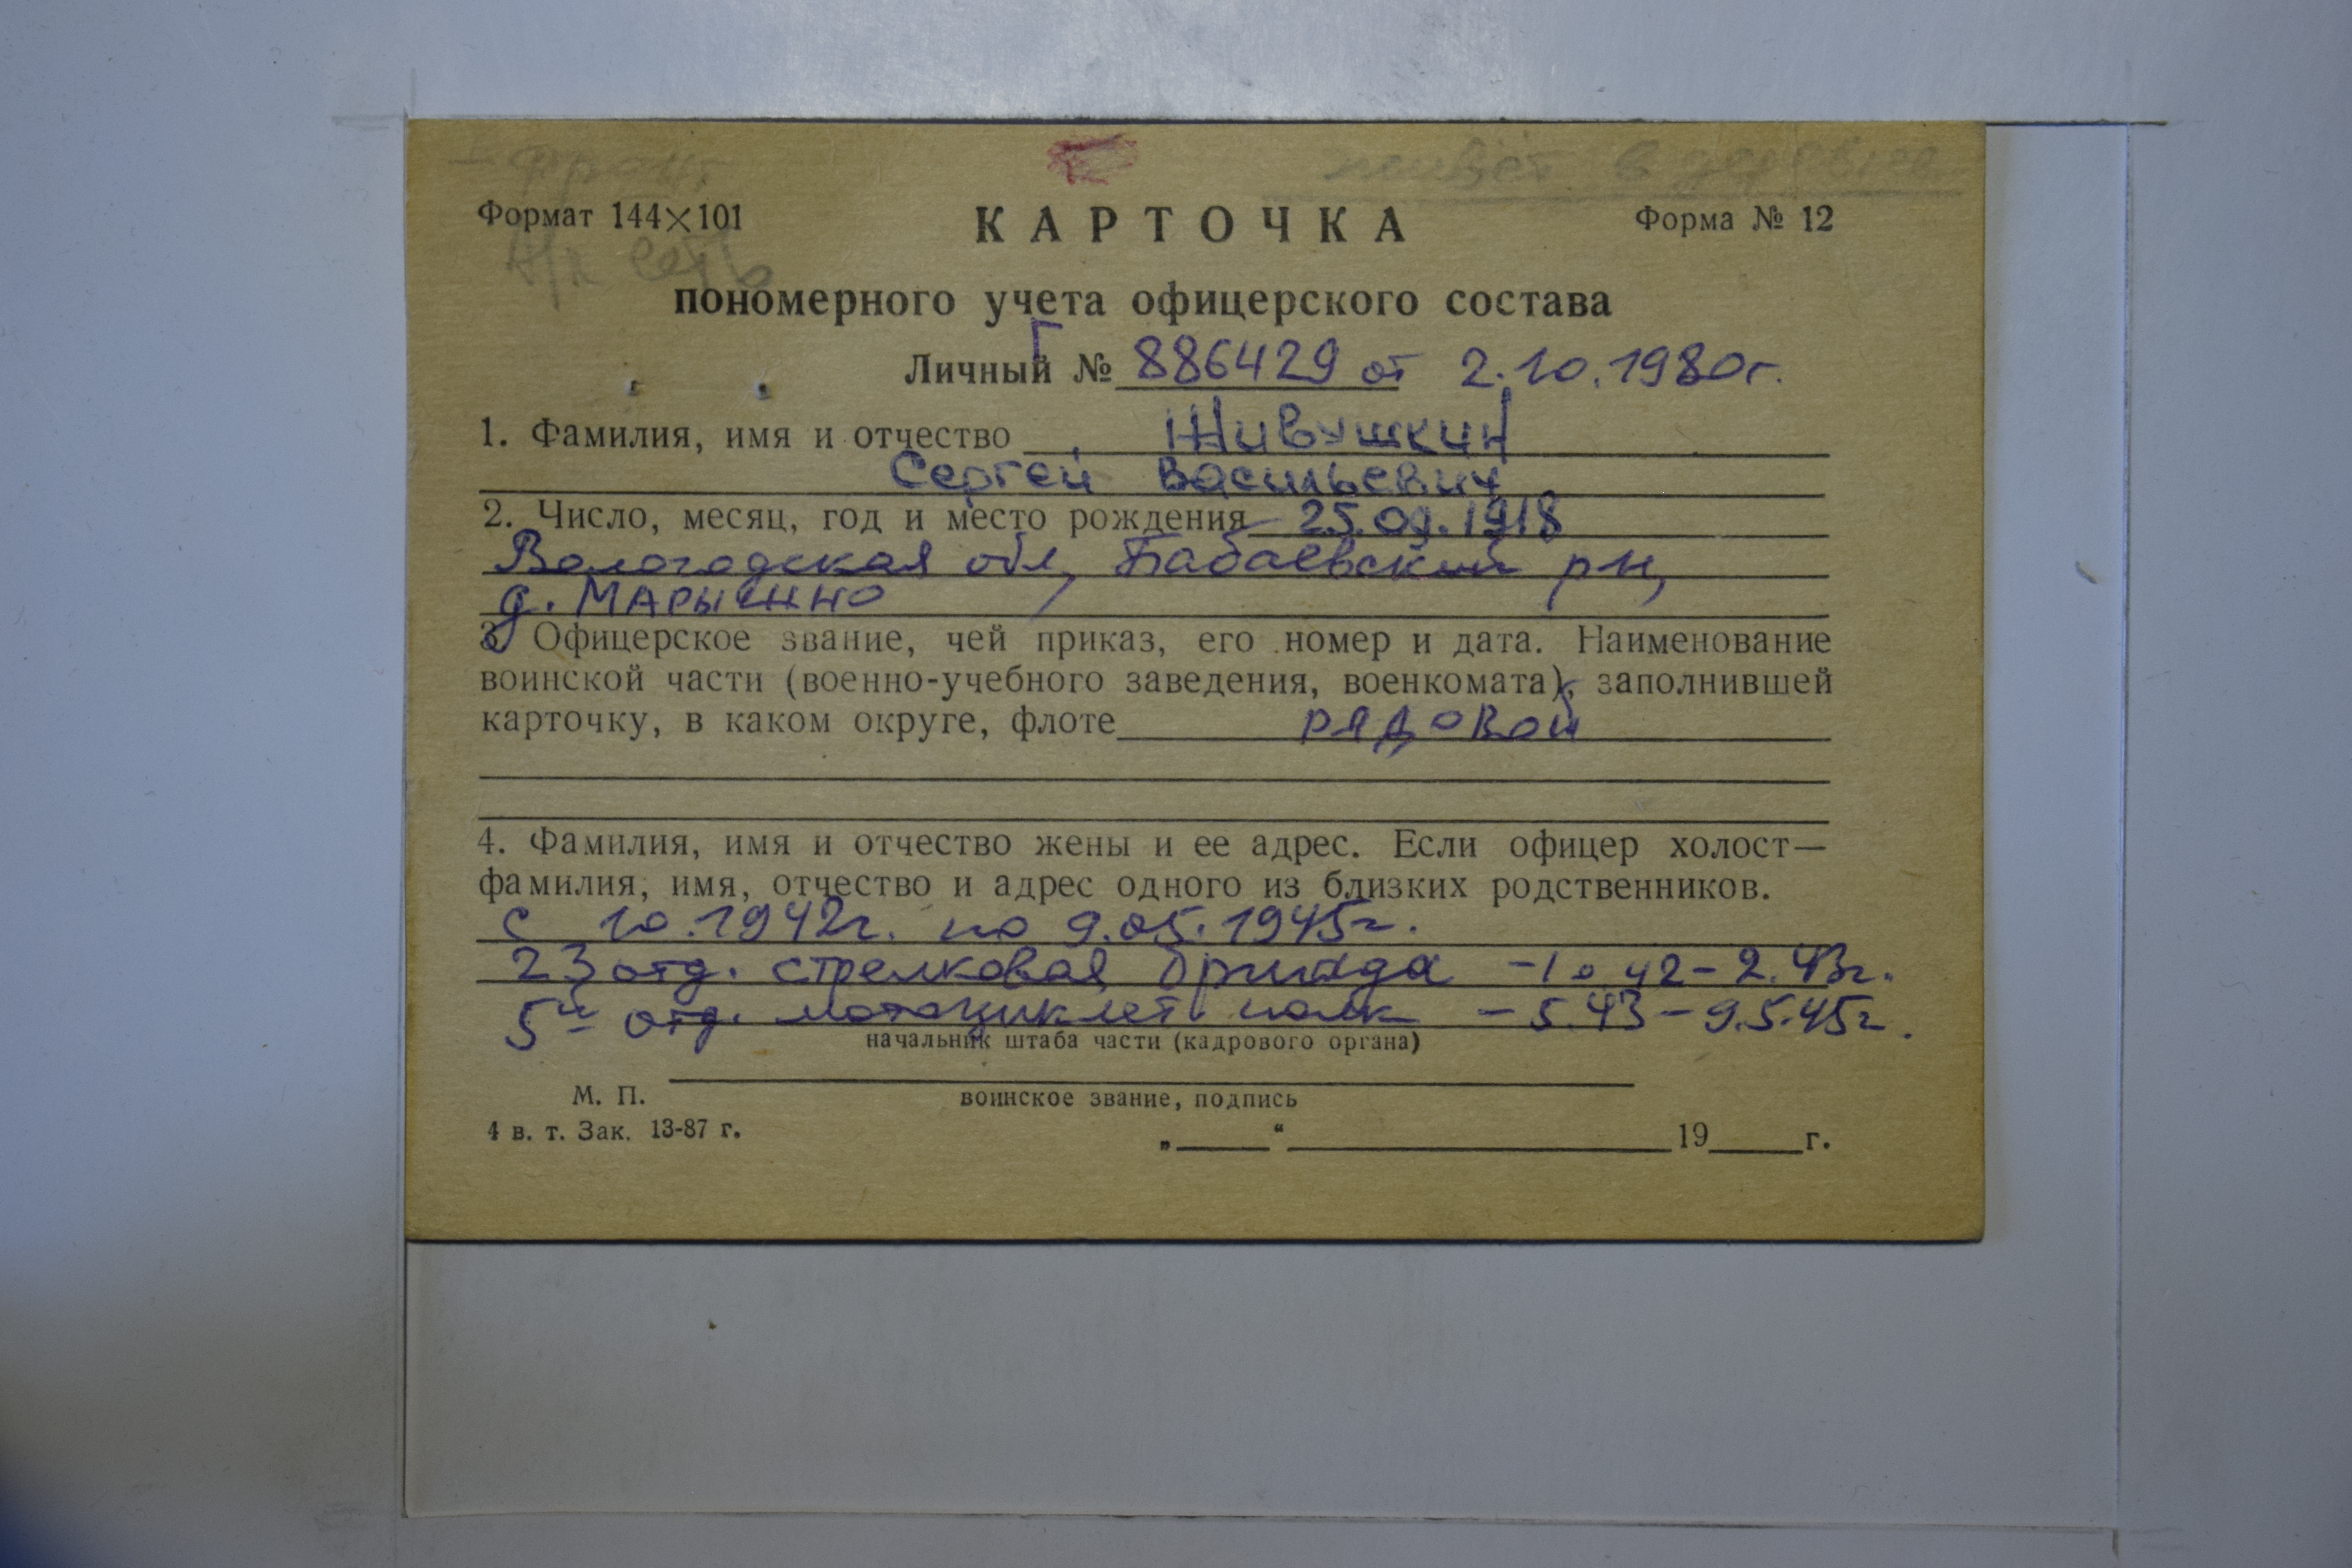 I фронт живёт в деревне
Формат 144×101 КАРТОЧКА Форма № 12
Н/п есть
пономерного учета офицерского состава
Личный № Г 886429 от 2.10.1980г.
1. Фамилия, имя и отчество Живушкин
Сергей Васильевич
2. Число, месяц, год и место рождения 25.09.1918
Вологодская обл, Бабаевский рн,
д.
3. Офицерское звание, чей приказ, его номер и дата. Наименование
воинской части (военно-учебного заведения, военкомата), заполнившей
карточку, в каком округе, флоте рядовой
4. Фамилия, имя и отчество жены и ее адрес. Если офицер холост—
фамилия, имя, отчество и адрес одного из близких родственников.
с 10.1942г. по 9.05.1945г.
23 отд. стрелковая бригада -10 42- 2.43г.
5й отд. мотоциклет полк - 5.43 - 9.5.45г.
начальник штаба части (кадрового органа)
М. П.
воинское звание, подпись
4 в. т. Зак. 13-87 г.
„____“ ____________ 19____г.